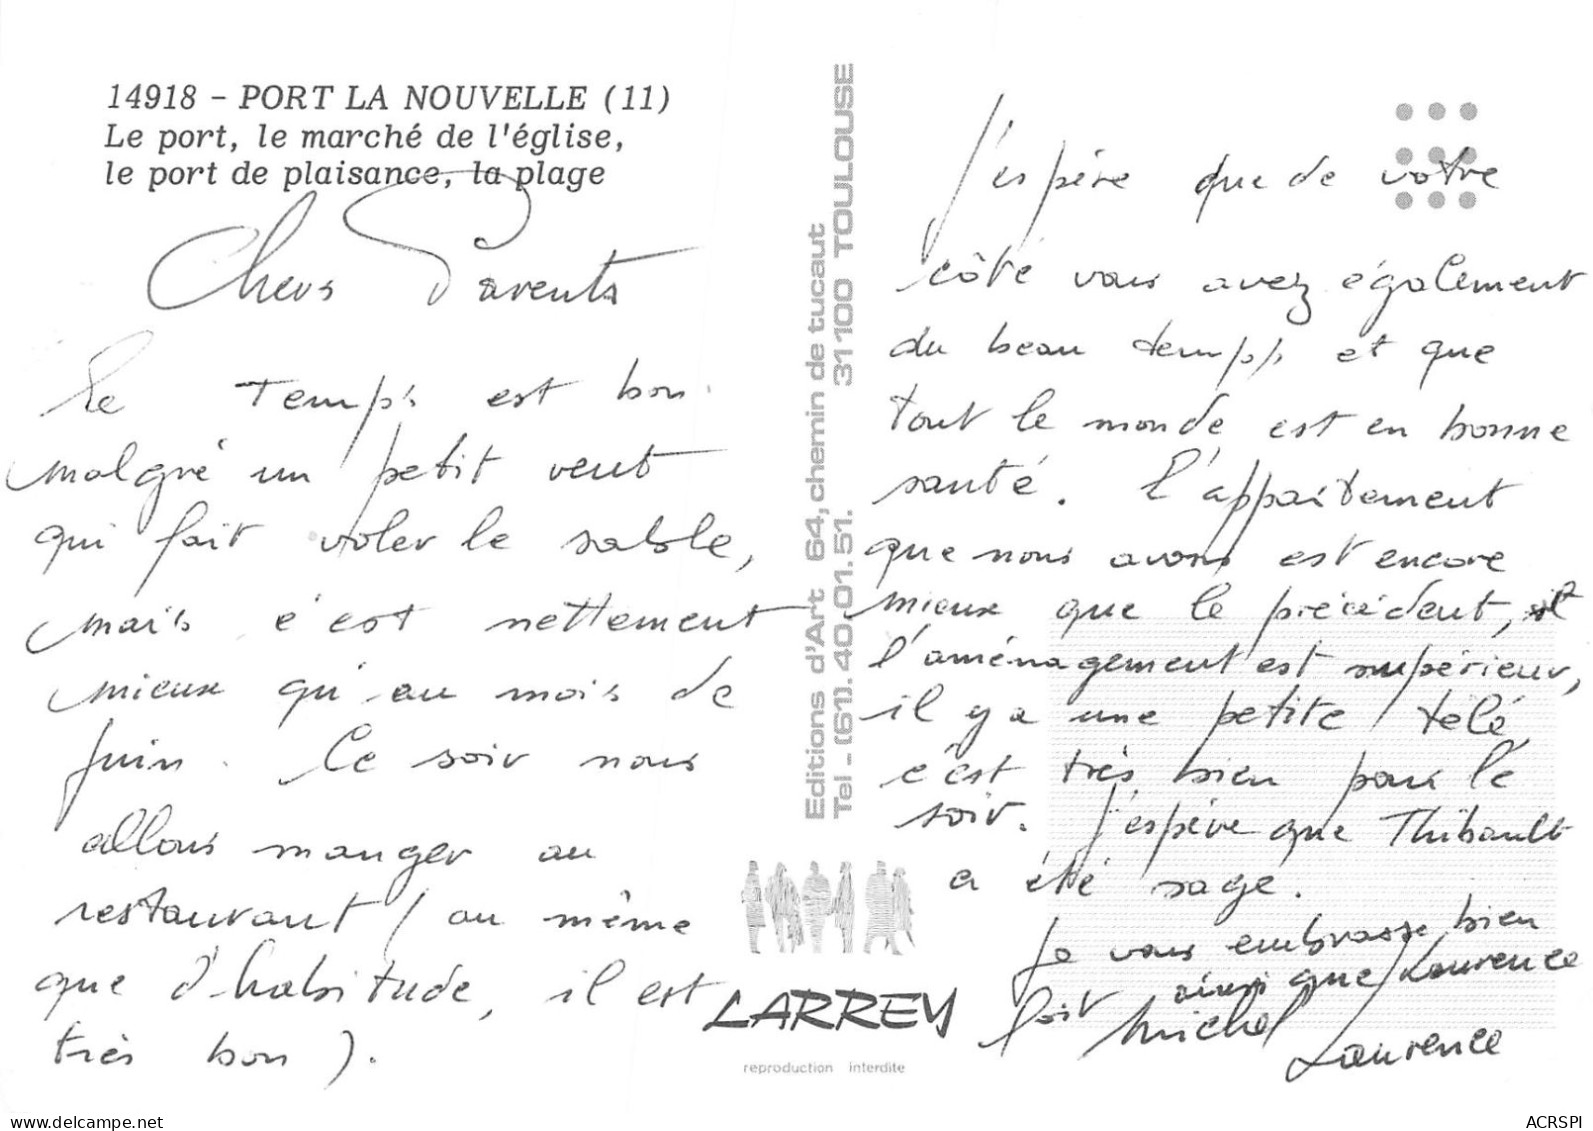 14918 - PORT LA NOUVELLE (11)
Le port, le marché de l'église,
le port de plaisance, la plage
Chers Parents
Le temps est bon
malgré un petit vent
qui fait voler le sable,
mais c'est nettement
mieux qu'au mois de
Juin. Ce soir nous
allons manger au
restaurant (au même
que d'habitude, il est
très bon).
Editions d'Art 64, chemin de tucaut
Tel - (61). 40.01.51. 31100 TOULOUSE
LARREY
reproduction interdite
J'espère que de votre
côté vous avez également
du beau temps et que
tout le monde est en bonne
santé. L'appartement
que nous avons est encore
mieux que le précédent,
l'aménagement est supérieur,
il y a une petite télé,
c'est très bien pour le
soir. J'espère que Thibault
a été sage.
Je vous embrasse bien
fort ainsi que Laurence
Michel
Laurence
www.delcampe.net
ACRSPI